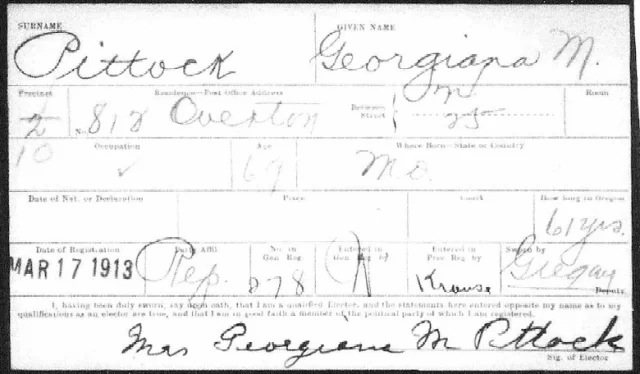 SURNAME GIVEN NAME
Pittock Georgiana M.
Precinct Residence—Post Office Address Between Street Room
1/2 No. 812 Overton 25
10
Occupation Age Where Born—State or Country
✓ 69 Mo.
Date of Nat. or Declaration Place Court How long in Oregon
61 yrs.
Date of Registration Party Affil No. in Gen Reg. Entered in Gen Reg by Entered in Prec Reg by Sworn by
MAR 17 1913 Rep. 878 Krause Gregary
Deputy
I, having been duly sworn, say upon oath, that I am a qualified Elector, and the statements here entered opposite my name as to my
qualifications as an elector are true, and that I am in good faith a member of the political party of which I am registered.
Mrs Georgiana M Pittock
Sig. of Elector